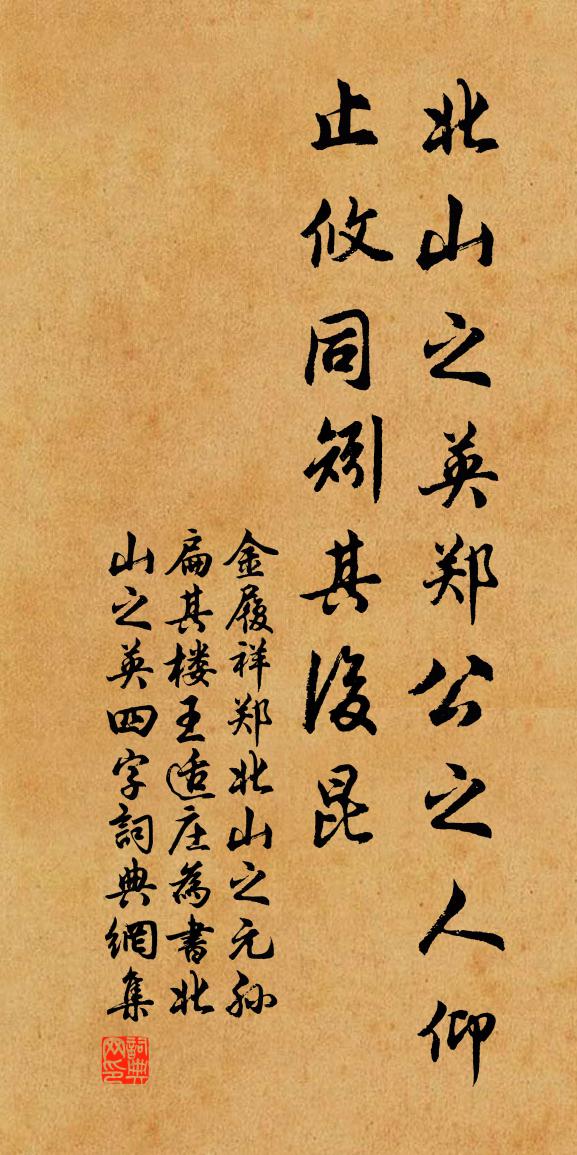 北山之英郑公之人仰
止攸同矧其後昆
金履祥郑北山之元孙
扁其楼王适庄為書北
山之英四字詞典網集
詞典网印